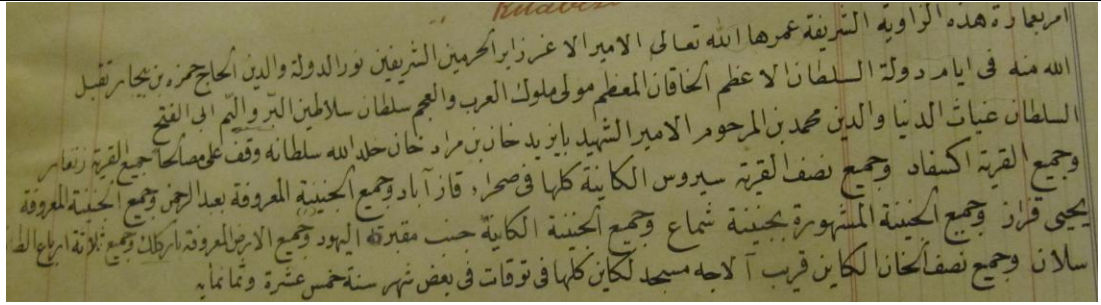 Khavess
امر بعمارة هذه الزاوية الشريفة عمرها الله تعالى الامير الاعز زاير الحرمين الشريفين نور الدولة والدين الحاج حمزه بن بيجار تقبل
الله منه فى ايام دولة السلطان الاعظم الخاقان المعظم مولى ملوك العرب والعجم سلطان سلاطين البر واليم ابى الفتح
السلطان غياث الدنيا والدين محمد بن المرحوم الامير الشهيد بايزيد خان بن مراد خان خلد الله سلطانه وقف على مصالحها جميع القرية
وجميع القرية اكسفاد وجميع نصف القرية سيروس الكاينة كلها فى صحراء قاز آباد وجميع الجنينة المعروفة بعبد الرحمن وجميع الجنينة المعروفة
يحيى قراز وجميع الجنينة المشهورة بجنينة شماع وجميع الجنينة الكاينة جنب مقبرة اليهود وجميع الارض المعروفة وجميع ثلاثة ارباع
سلان وجميع نصف الخان الكاين قريب آلاجه مسجد لكاين كلها فى توقات فى بعض شهر سنة خمس عشرة وثمانمايه